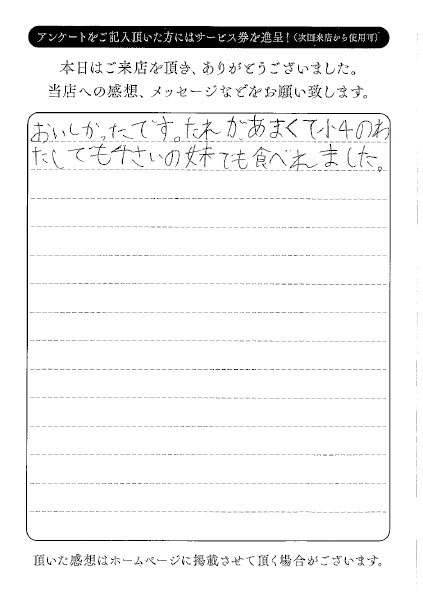 アンケートをご記入頂いた方にはサービス券を進呈!(次回来店から使用可)
本日はご来店を頂き、ありがとうございました。
当店への感想、メッセージなどをお願い致します。
おいしかったです。たれがあまくて小4のわ
たしでも4さいの妹でも食べれました。
頂いた感想はホームページに掲載させて頂く場合がございます。